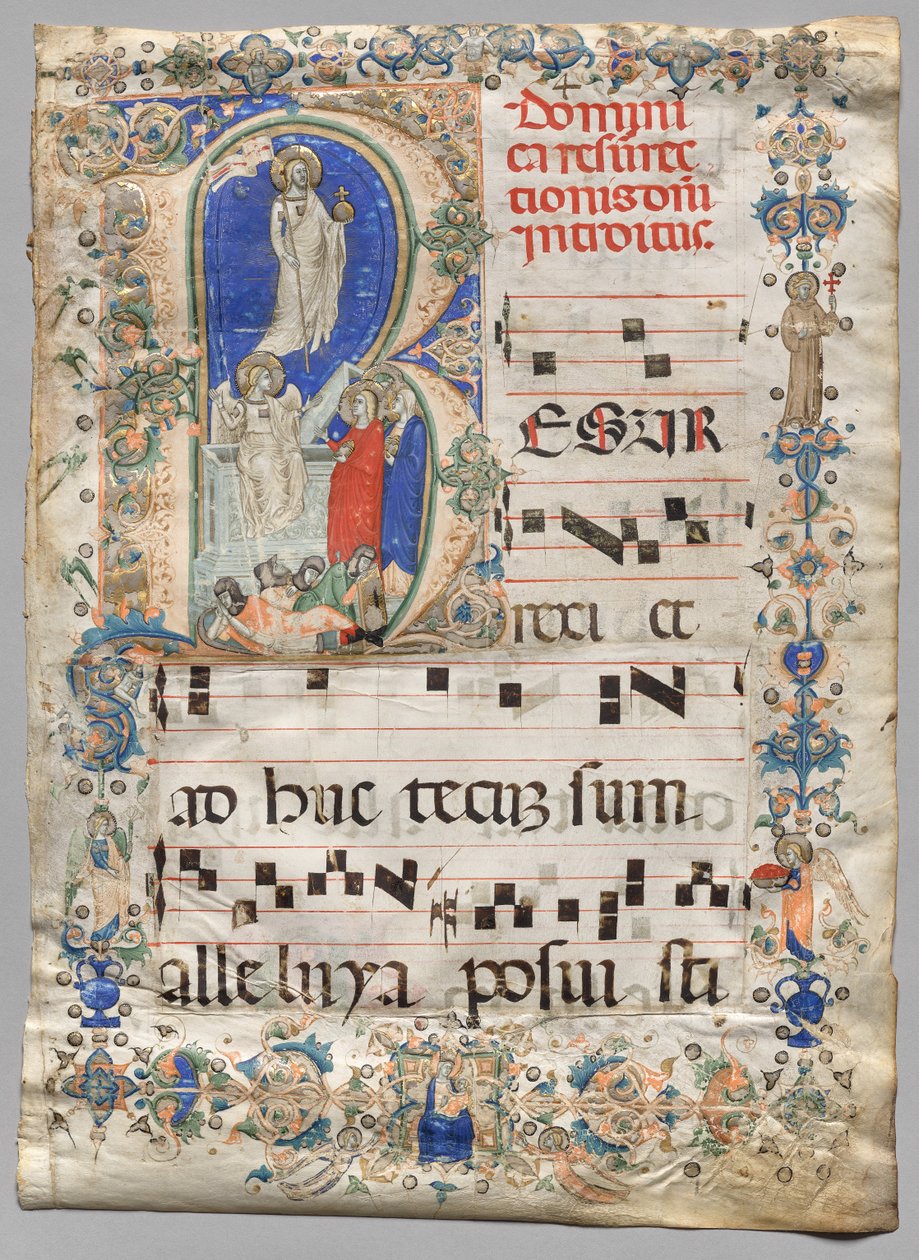 4
Domini
ca resurrec
tionis dñi
introitus.
RESUR
rexi et
ad huc tecuz sum
alleluya posui sti